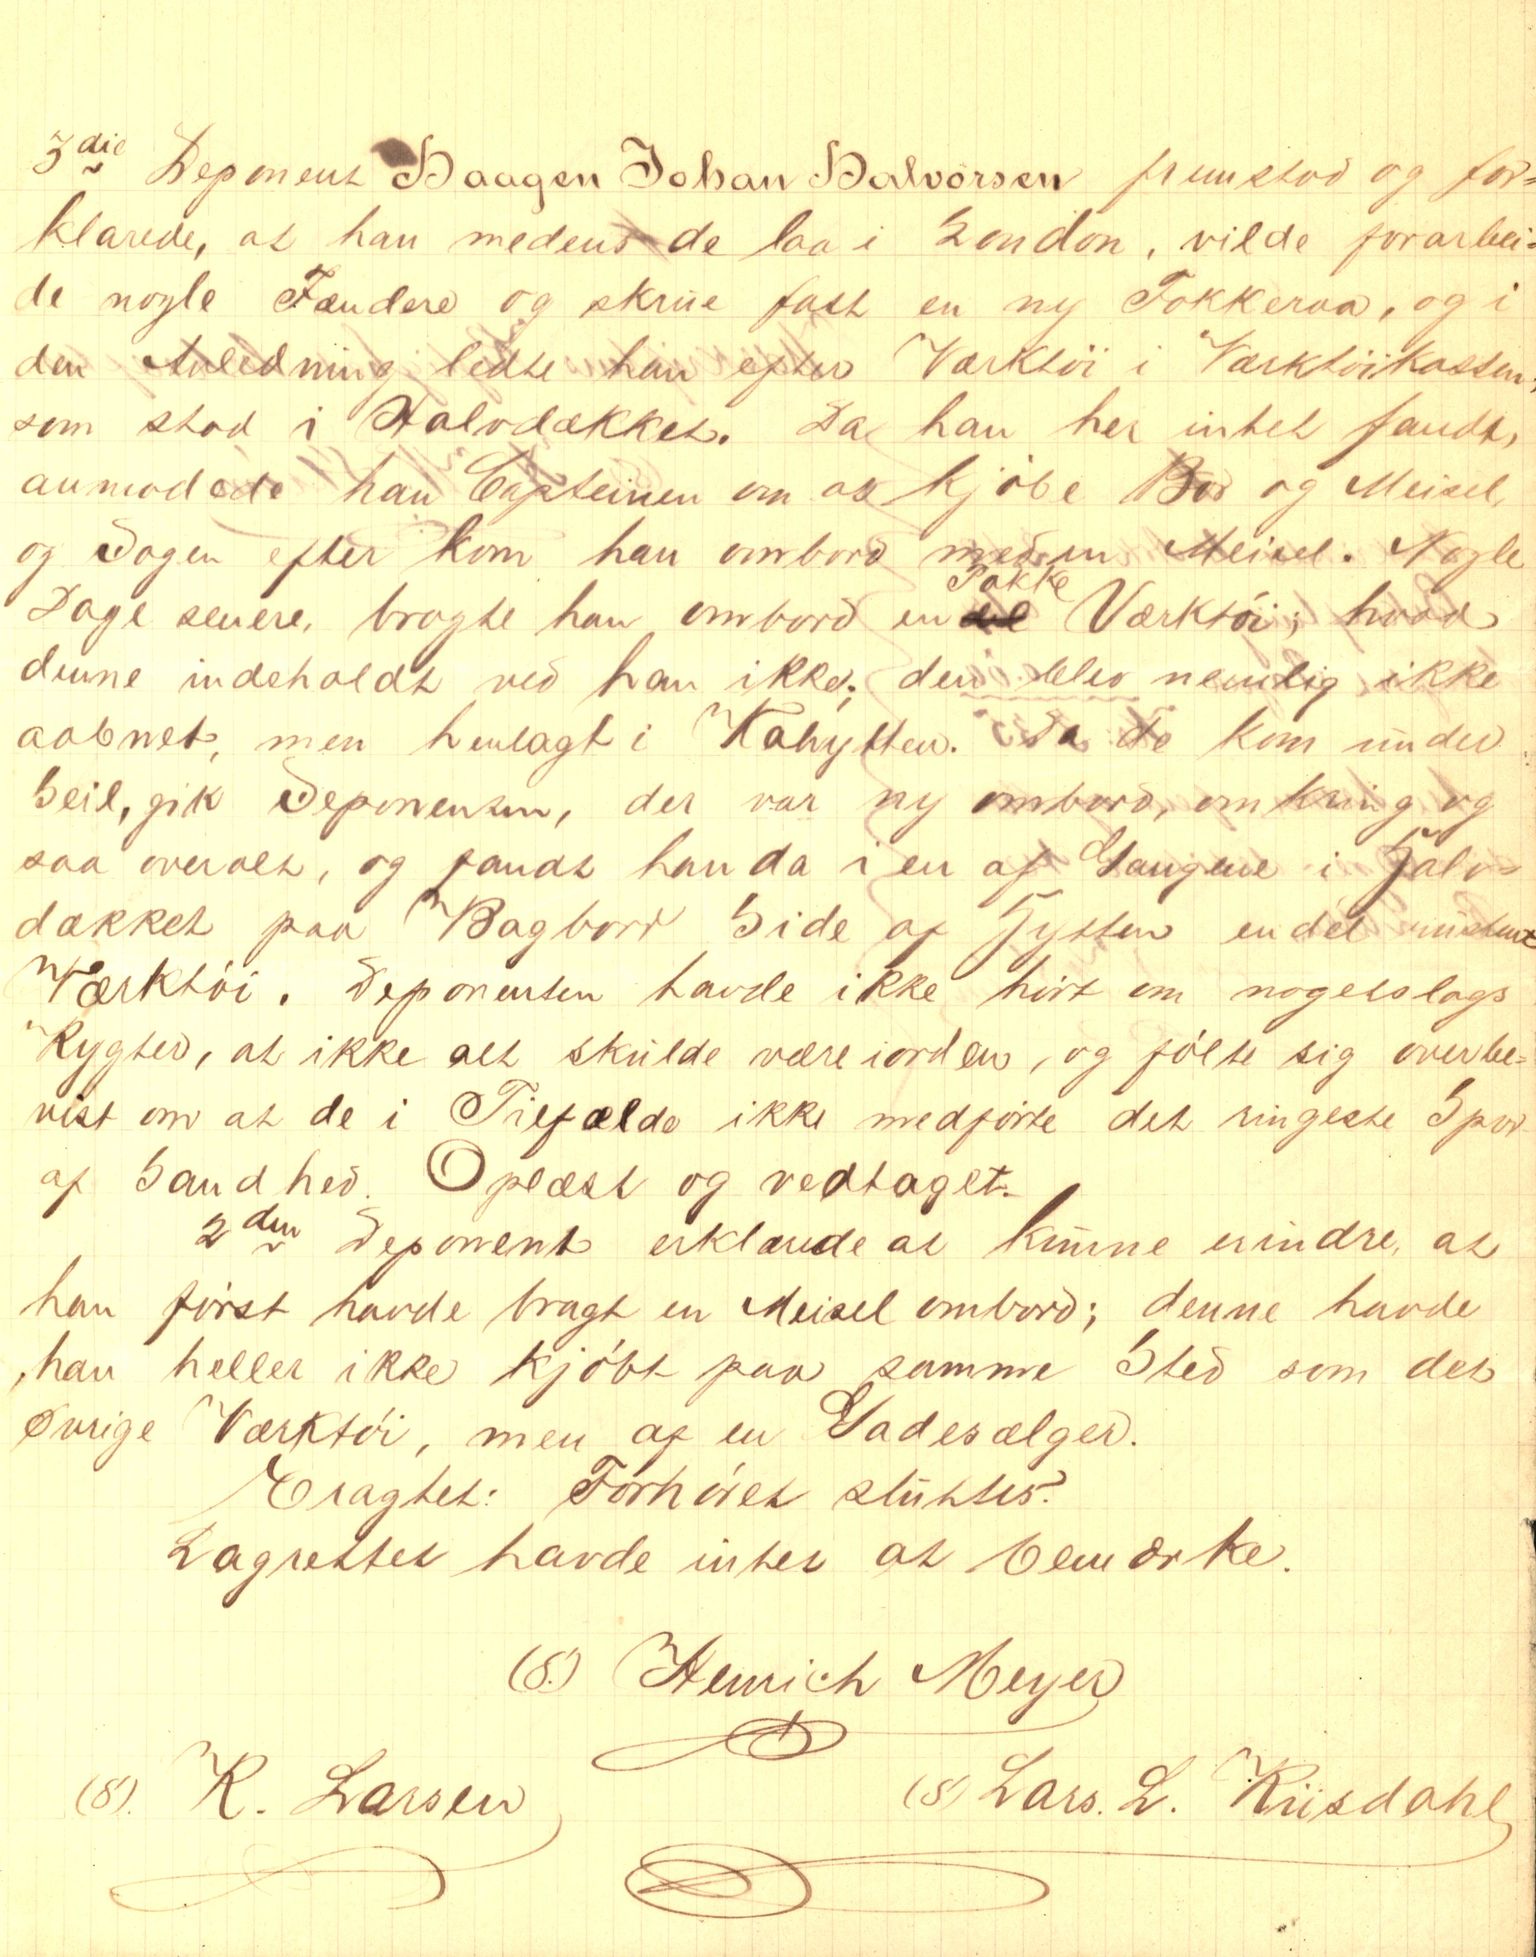 3die Deponent Haagen Johan Halvorsen fremstod og for=
klarede, at han medens de laa i London, vilde forarbei=
de nogle Fændere og skrue fast en ny Fokkeraa, og i
den Anledning ledte han efter Værktöi i Værktöikassen,
som stod i Halvdækket. Da han her intet fandt,
anmodede han Capteinen om at kjöbe Bor og Meisel,
og Dagen efter kom han ombord med en Meisel. Nogle
Dage senere, bragte han ombord en Pakke Værktói; hvad
denne indeholdt ved han ikke; den blev nemlig ikke
aabnet, men henlagt i Kahytten. Da de kom under
Seil, gik Deponenten, der var ny ombord, omkring og
saa overalt, og fandt han da i en af Gangene i Halv=
dækket paa Bagbord Side af Hytten endel rustent
Værktói. Deponenten havde ikke hört om nogetslags
Rygter, at ikke alt skulde være iorden, og fólte sig overbe=
vist om at de i Tilfælde ikke medförte det ringeste Spor
af Sandhed. Oplæst og vedtaget.
2den Deponent erklærede at kunne erindre, at
han fórst havde bragt en Meisel ombord; denne havde
han heller ikke kjóbt paa samme Sted som det
Øvrige Værktói, men af en Gadesælger.
Eragtet: Forhöret sluttes.
Lagrettet havde intet at bemærke.
(S.) Henrich Meyer
(S). K. Larsen (S) Lars. L. Kusdahl